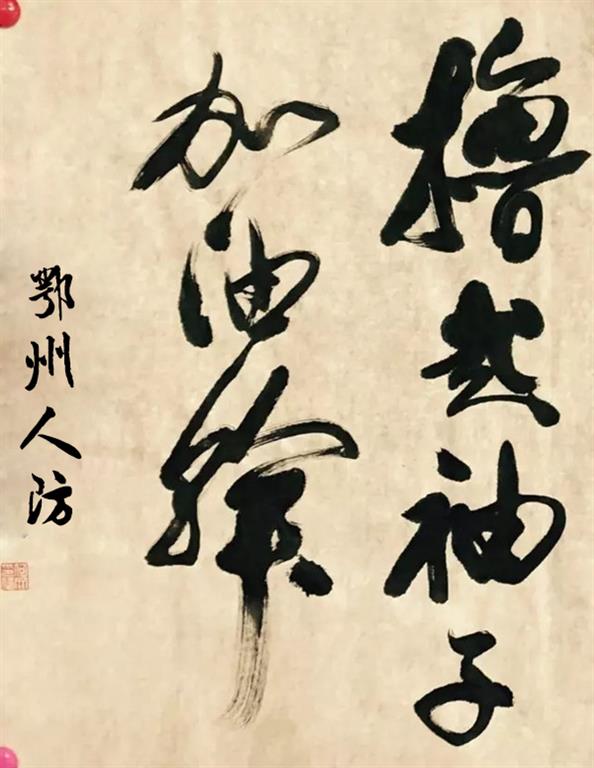 撸起袖子
加油干
鄂州人防